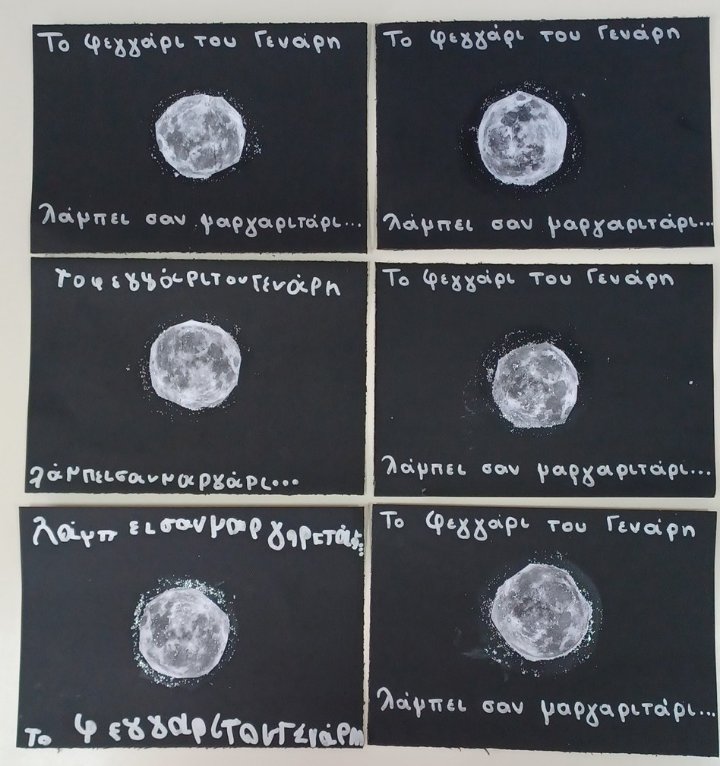 Το φεγγάρι του Γενάρη
λάμπει σαν μαργαριτάρι...
Το φεγγάρι του Γενάρη
λάμπει σαν μαργαριτάρι...
το φεγγάρι του Γενάρη
λάμπεισανμαργάρι...
Το φεγγάρι του Γενάρη
λάμπει σαν μαργαριτάρι...
λάμπ εισανμαργαρετάρι...
Το φεγγάρι του Γενάρη
Το φεγγάρι του Γενάρη
λάμπει σαν μαργαριτάρι...